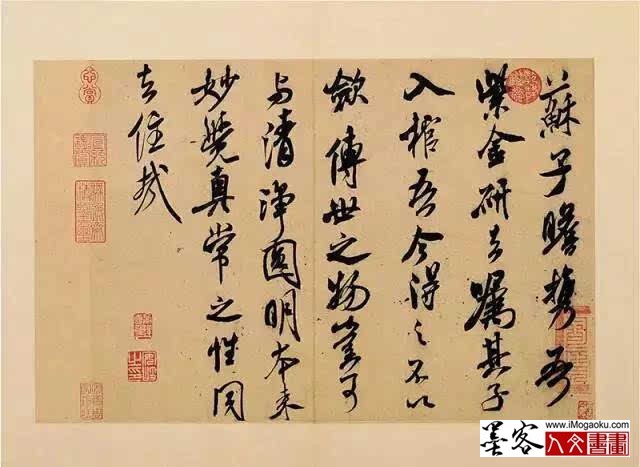 蘇子瞻攜吾
紫金研去囑其子
入棺吾今得之不以
斂傳世之物豈可
与清淨圓明本来
妙覺真常之性同
去住哉
www.iMogaoku.com
墨客
人文書畫